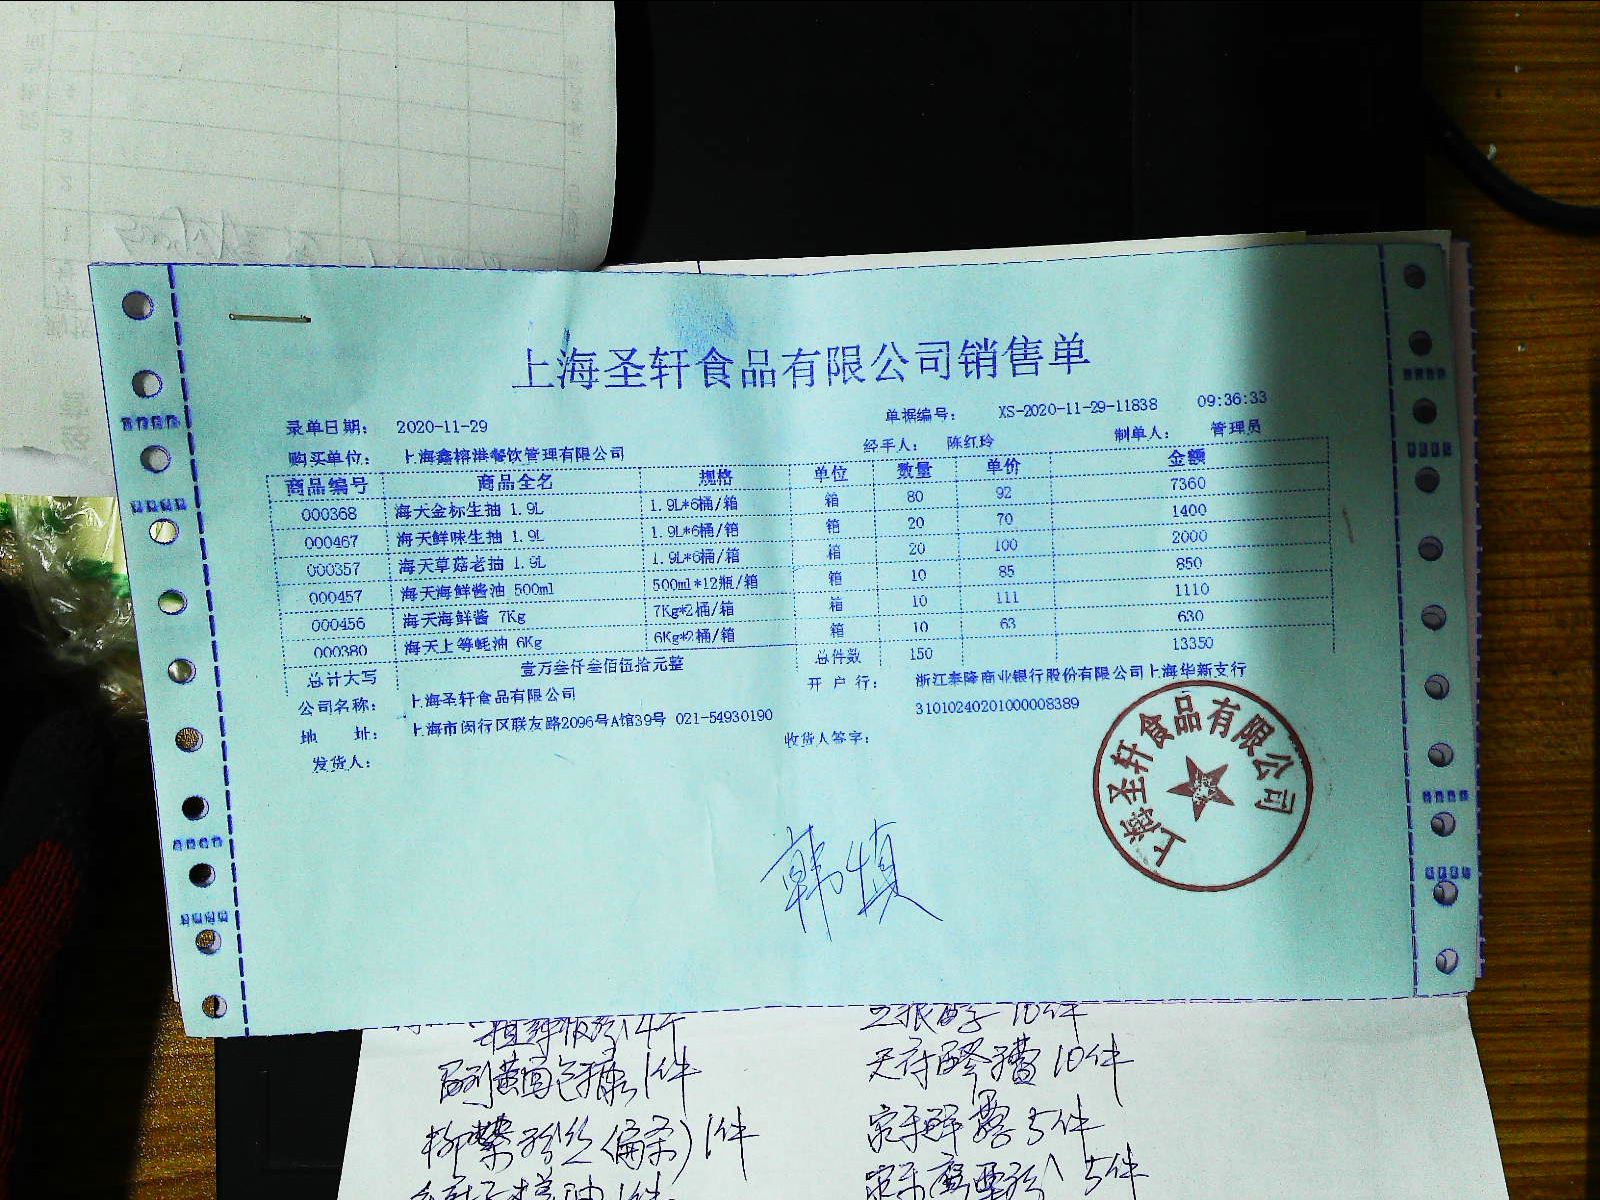 上海圣轩食品有限公司销售单
录单日期： 2020-11-29 单据编号： XS-2020-11-29-11838 09:36:33
购买单位： 上海鑫榕港餐饮管理有限公司 经手人： 陈红玲 制单人： 管理员
商品编号 商品全名 规格 单位 数量 单价 金额
000368 海天金标生抽 1.9L 1.9L*6桶/箱 箱 80 92 7360
000467 海天鲜味生抽 1.9L 1.9L*6桶/箱 箱 20 70 1400
000357 海天草菇老抽 1.9L 1.9L*6桶/箱 箱 20 100 2000
000457 海天海鲜酱油 500ml 500ml*12瓶/箱 箱 10 85 850
000456 海天海鲜酱 7Kg 7Kg*2桶/箱 箱 10 111 1110
000380 海天上等蚝油 6Kg 6Kg*2桶/箱 箱 10 63 630
总计大写 壹万叁仟叁佰伍拾元整 总件数 150 13350
公司名称： 上海圣轩食品有限公司 开 户 行： 浙江泰隆商业银行股份有限公司上海华新支行
地 址： 上海市闵行区联友路2096号A馆39号 021-54930190 31010240201000008389
发货人： 收货人签字：
上海圣轩食品有限公司
韩慎
4个 10件
黄面包糠1件 天府醪糟10件
粉丝(扁条)1件 5件
1件 5件